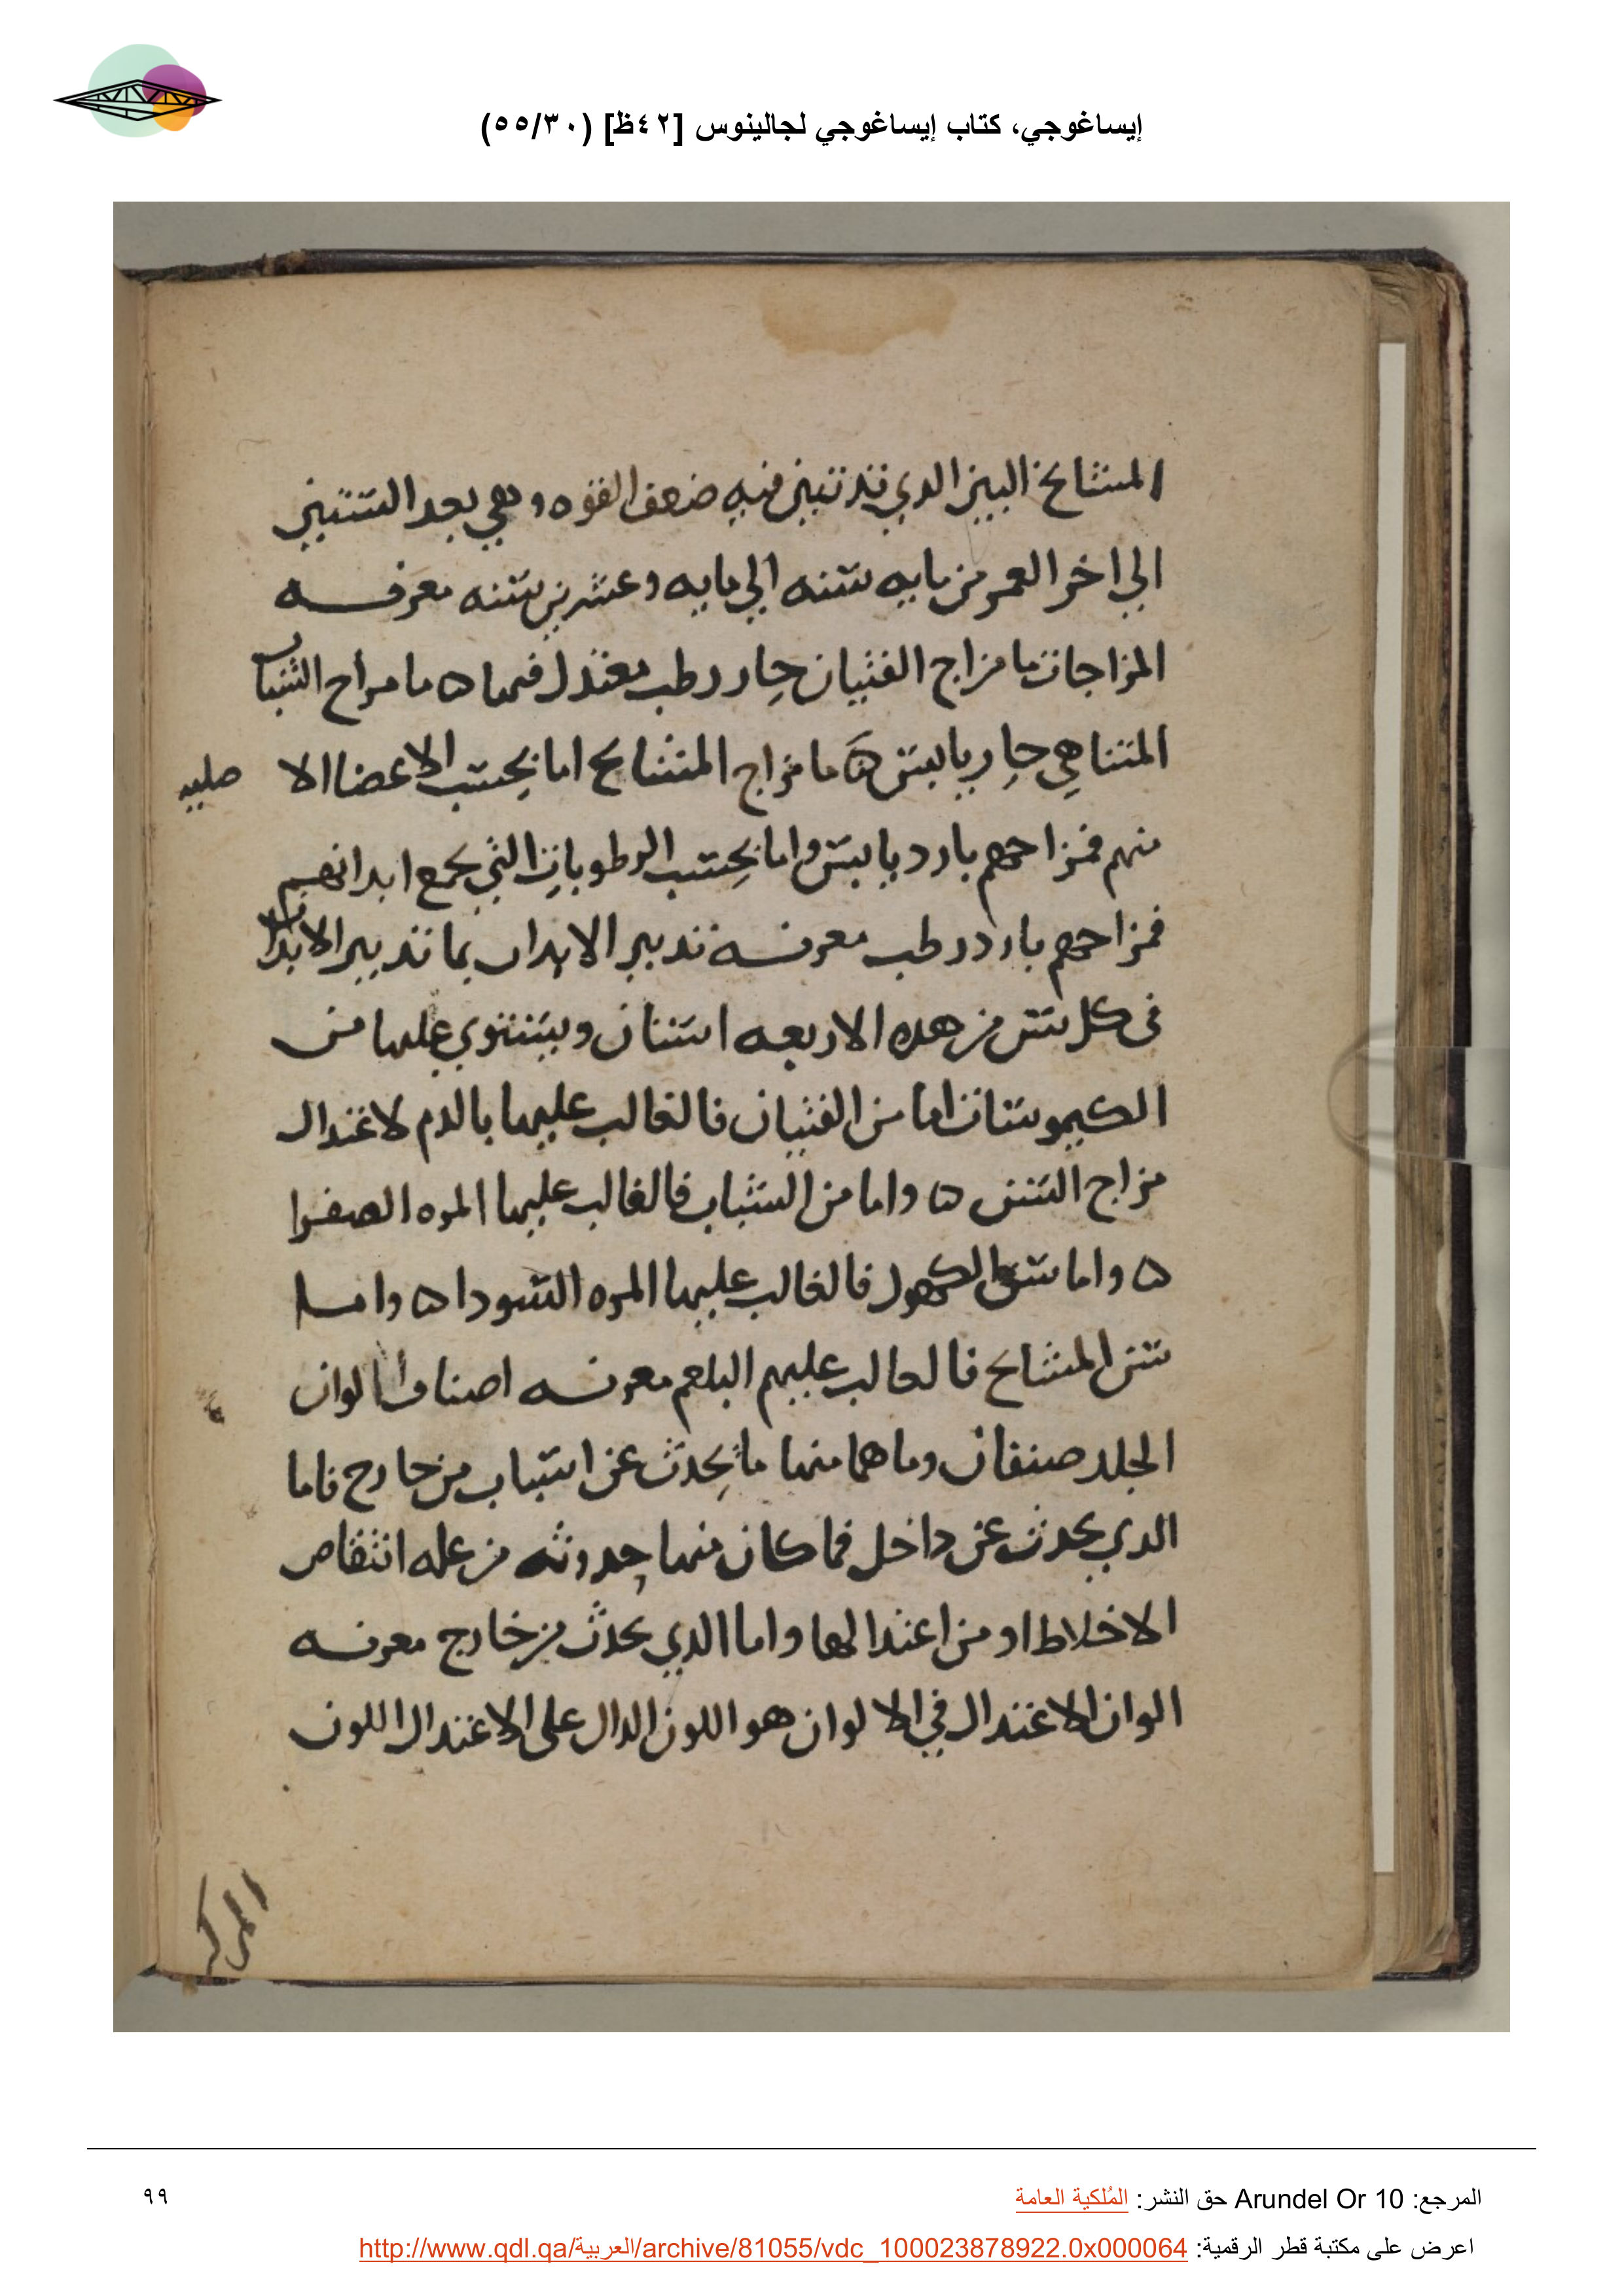 إيساغوجي، كتاب إيساغوجي لجالينوس [٤٢ظ] (٥٥/٣٠)
المشايخ البين الدي قد تبين فيه ضعف القوه وهي بعد الستين
الي اخر العمر من مايه سنه الي مايه وعشرين سنه معرفه
المزاجات ما مزاج الفتيان حار رطب معتدل فيهما ه ما مزاج الشباب
المتناهي حار يابس ه ما مزاج المشايخ اما بحسب الاعضا الا صلبيه
منهم فمزاجهم بارد يابس واما بحسب الرطوبات التي بجمع ابدانهم
فمزاجهم بارد رطب معرفه تدبير الابدان بما تدبير الابدان
في كل سن من هده الاربعه اسنان ويستوي عليها من
الكيموسات اما من الفتيان فالغالب عليهما بالدم لاعتدال
مزاج السن ه واما من الشباب فالغالب عليهما المره الصفرا
ه واما سن الكهول فالغالب عليهما المره السودا ه واما
سن المشايح فالعالب عليهم البلغم معرفه اصناف الوان
الجلد صنفان وما هما منهما ما يحدث عن اسباب من خارج فاما
الدي يحدث عن داخل فما كان منهما حدوثه من عله انتقاص
الاخلاط او من اعتدالها واما الدي يحدث من خارج معرفه
الوان الاعتدال في الالوان هو اللون الدال على الاعتدال اللون
المركب
المرجع: Arundel Or 10 حق النشر: المُلكية العامة
٩٩
اعرض على مكتبة قطر الرقمية: http://www.qdl.qa/العربية/archive/81055/vdc_100023878922.0x000064